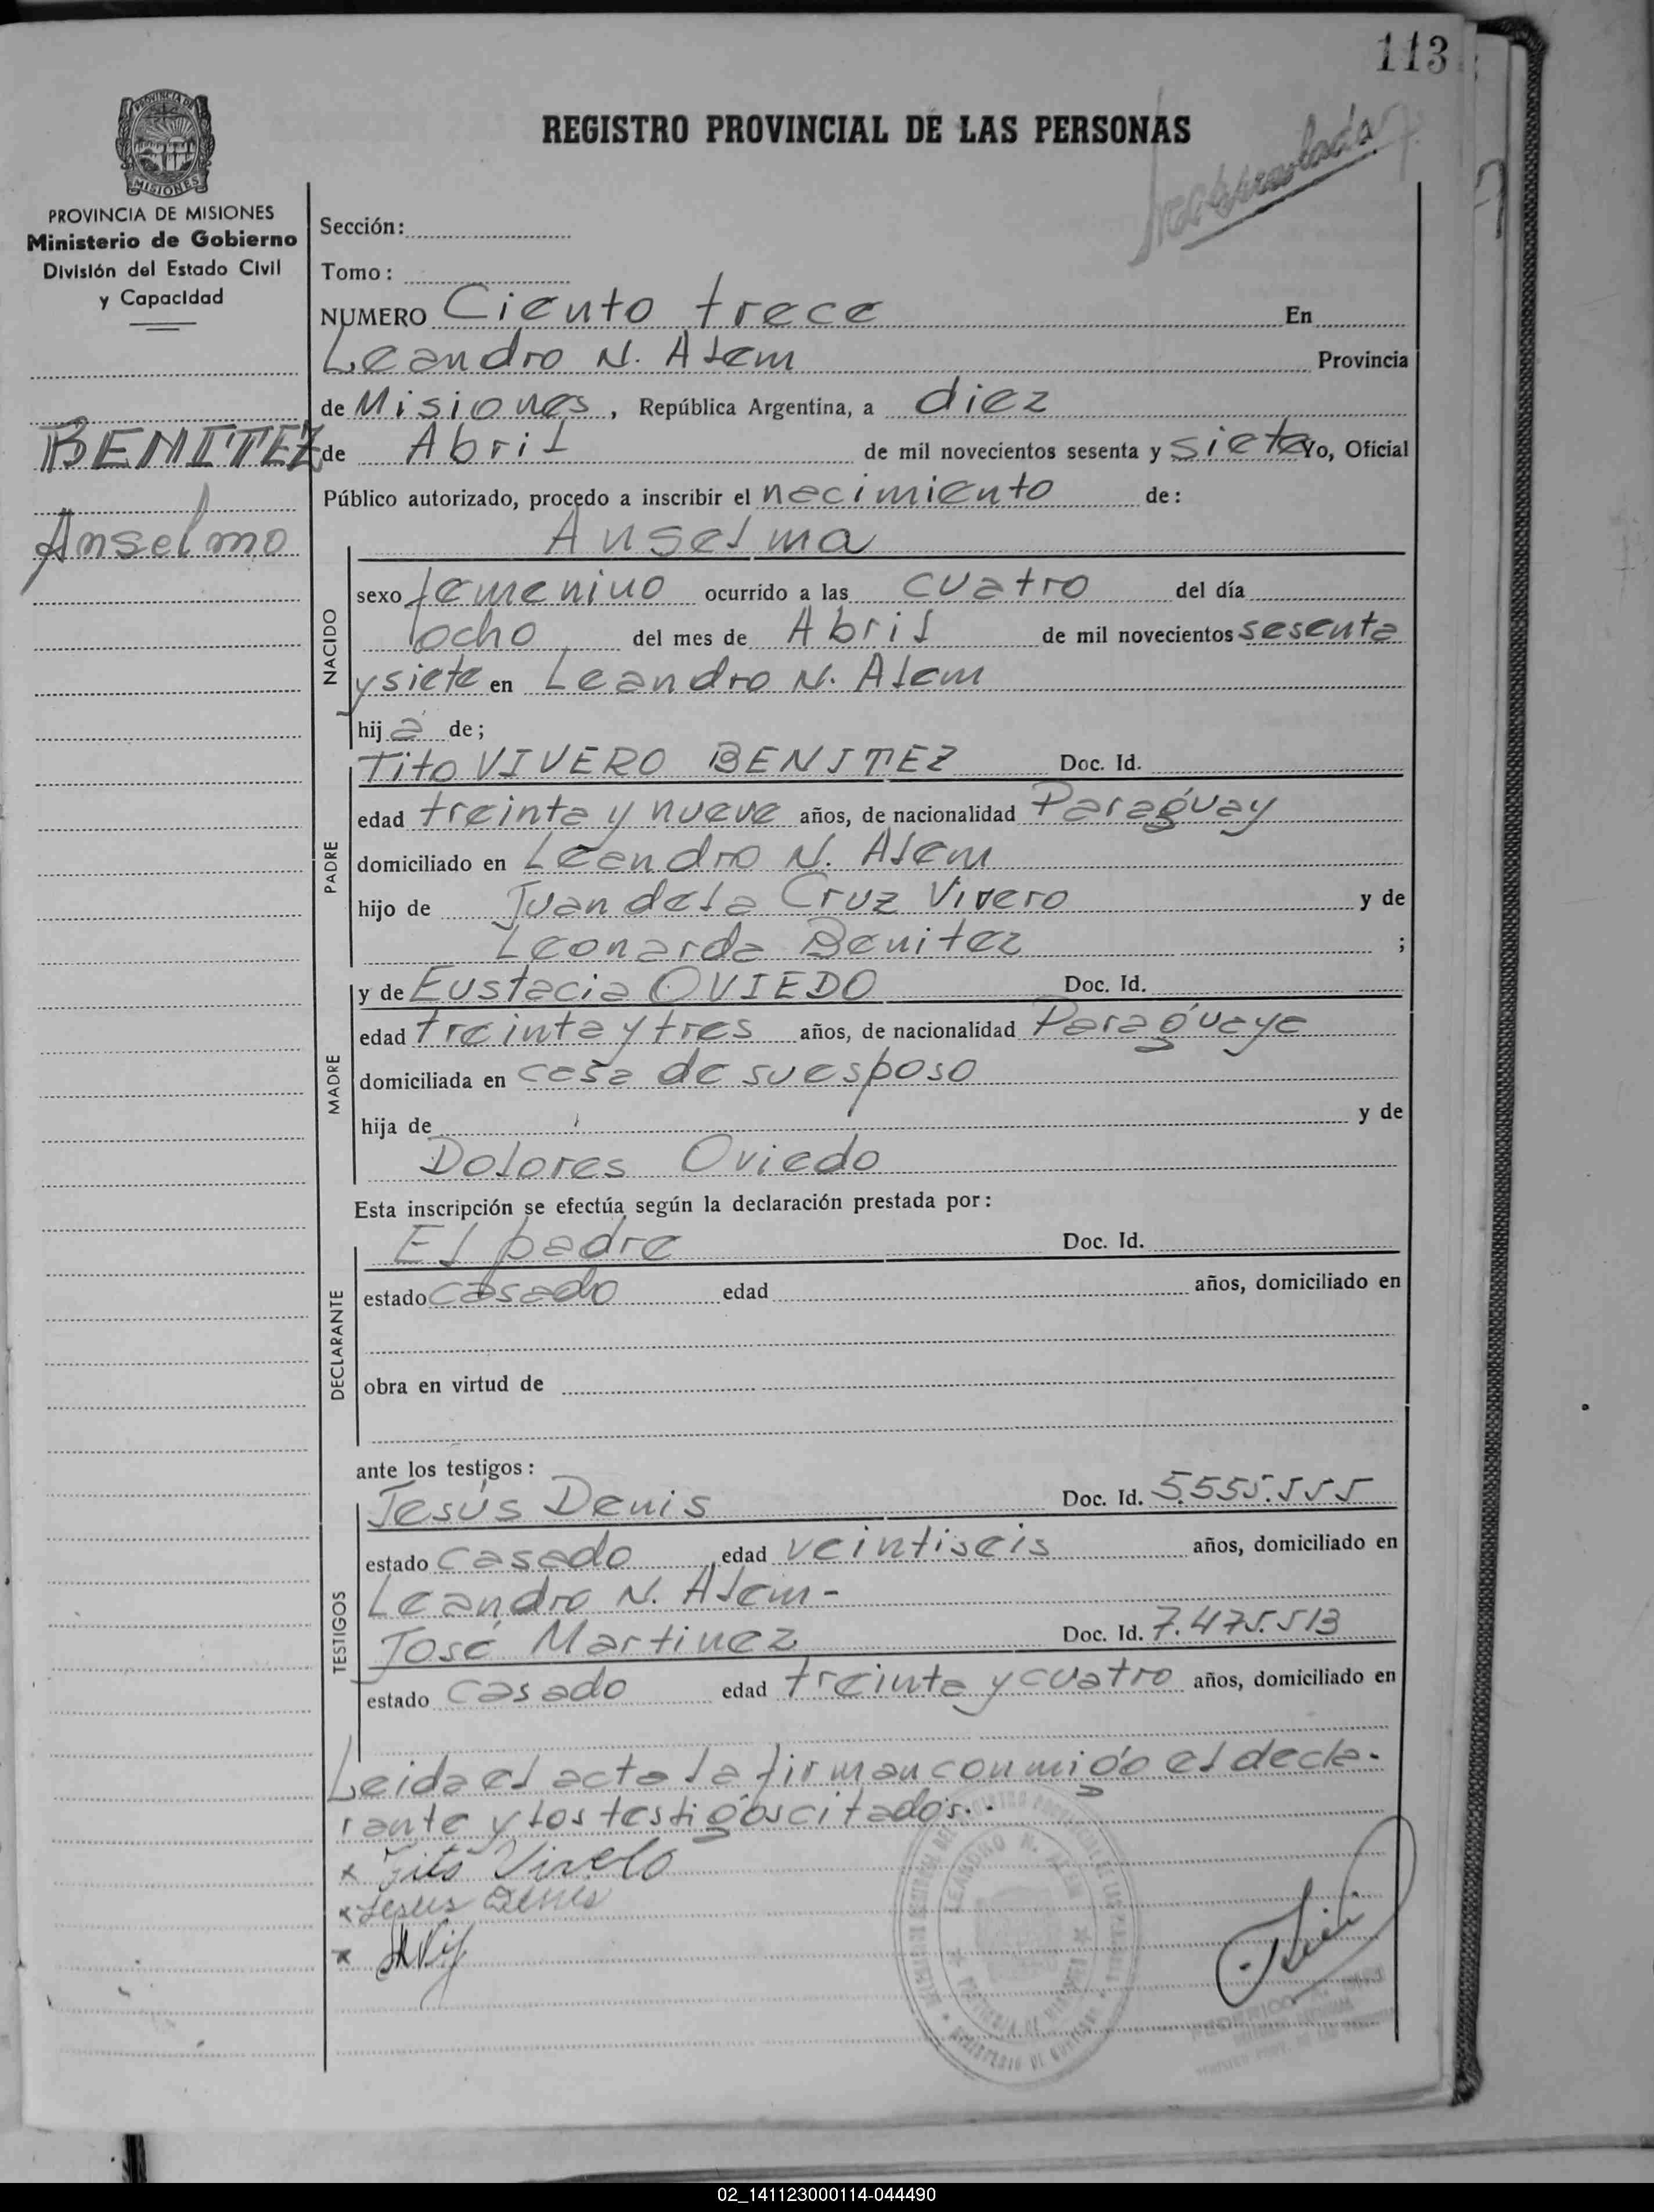 113
REGISTRO PROVINCIAL DE LAS PERSONAS
PROVINCIA DE
MISIONES
PROVINCIA DE MISIONES
Ministerio de Gobierno
División del Estado Civil
y Capacidad
Sección:
Tomo:
NUMERO Ciento trece En
Leandro N. Alem Provincia
de Misiones, República Argentina, a diez
BENITEZ
de Abril de mil novecientos sesenta y siete Yo, Oficial
Público autorizado, procedo a inscribir el nacimiento de:
Anselmo
Anselma
NACIDO
sexo femenino ocurrido a las cuatro del día
ocho del mes de Abril de mil novecientos sesenta
y siete en Leandro N. Alem
hija de;
PADRE
Tito VIVERO BENITEZ Doc. Id.
edad treinta y nueve años, de nacionalidad Paraguay
domiciliado en Leandro N. Alem
hijo de Juan de la Cruz Vivero y de
Leonarda Benitez ;
MADRE
y de Eustacia OVIEDO Doc. Id.
edad treinta y tres años, de nacionalidad Paraguaya
domiciliada en casa de su esposo
hija de y de
Dolores Oviedo
Esta inscripción se efectúa según la declaración prestada por:
DECLARANTE
El padre Doc. Id.
estado casado edad años, domiciliado en
obra en virtud de
ante los testigos:
TESTIGOS
Jesús Denis Doc. Id. 5.555.555
estado casado edad veintiseis años, domiciliado en
Leandro N. Alem-
José Martinez Doc. Id. 7.475.513
estado casado edad treinta y cuatro años, domiciliado en
Leida el acta la firman conmigo el decla-
rante y los testigos citados.-
x Tito
x Jesus Denis
x
LEANDRO N. ALEM
02_141123000114-044490